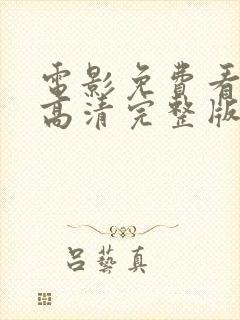 電影免費看
高清完整版
呂藝真